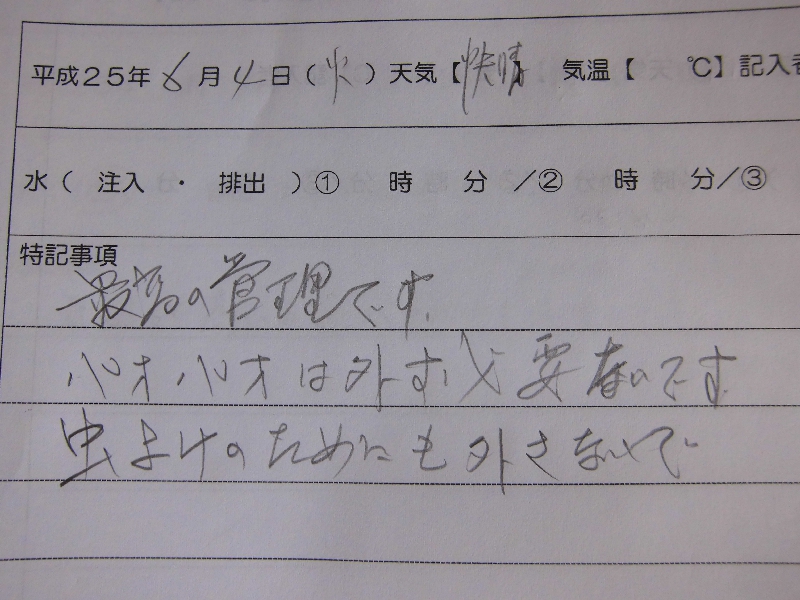 平成25年6月4日(火)天気【快晴】 気温【 ℃】記入者
水( 注入 ・ 排出 )① 時 分 /② 時 分/③
特記事項
最高の管理です。
パオパオは外す必要ないです
虫よけのためにも外さないで